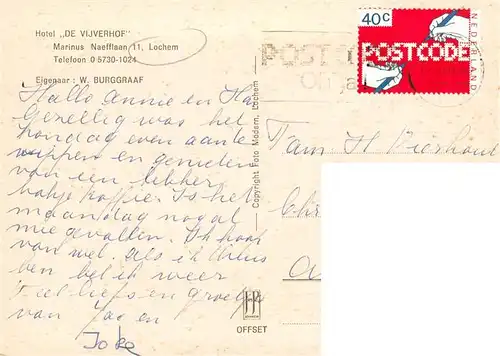 Hotel „DE VIJVERHOF"
Marinus Naefflaan 11, Lochem
Telefoon 0 5730-1024
Eigenaar : W. BURGGRAAF
Hallo Annie en
Gezellig was het
zondag even aan te
wippen en genieten
van een lekker
bakje koffie. Is het
maandag nogal
mee gevallen. Ik hoop
van wel. Als ik thuis
ben bel ik weer
Veel liefs en groetjes
van Jac en
Joke
Copyright Foto Modern, Lochem
OFFSET
40c
POSTCODE
NEDERLAND
POSTCODE
Fam H
Chr